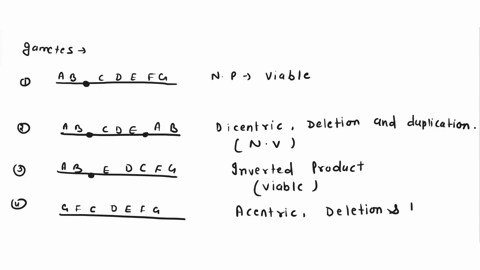 gametes →
① A B C D E F G N.P → Viable
② A B C D E A B Dicentric, Deletion and duplication.
(N.V)
③ A B E D C F G Inverted Product
(viable)
④ G F C D E F G Acentric, Deletion &